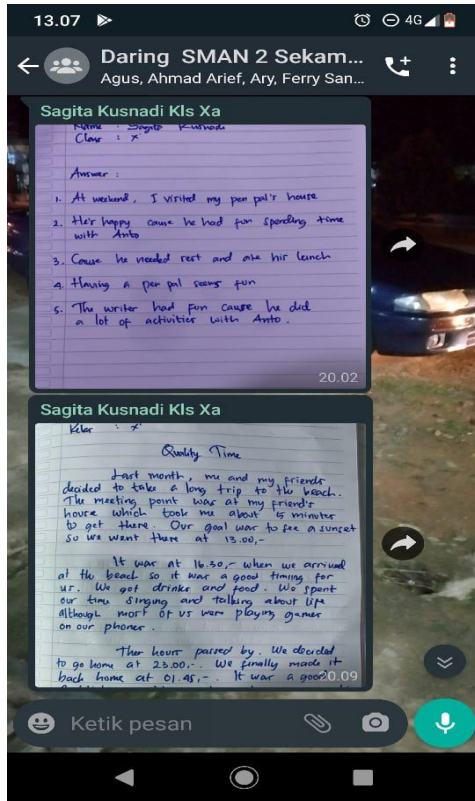 13.07
4G
Daring SMAN 2 Sekam...
Agus, Ahmad Arief, Ary, Ferry San...
Sagita Kusnadi Kls Xa
Name : Sagita Kusnadi
Class : X
Answer :
1. At weekend, I visited my pen pal's house
2. He's happy cause he had fun spending time
with Anto
3. Cause he needed rest and ate his lunch
4. Having a pen pal seems fun
5. The writer had fun cause he did
a lot of activities with Anto.
20.02
Sagita Kusnadi Kls Xa
Kelas : X
Quality Time
Last month, me and my friends
decided to take a long trip to the beach.
The meeting point was at my friend's
house which took me about 15 minutes
to get there. Our goal was to see a sunset
so we went there at 13.00,-
It was at 16.30,- when we arrived
at the beach so it was a good timing for
us. We got drinks and food. We spent
our time singing and talking about life
although most of us were playing games
on our phones.
The hours passed by. We decided
to go home at 23.00,-. We finally made it
back home at 01.45,-. It was a good
20.09
Ketik pesan